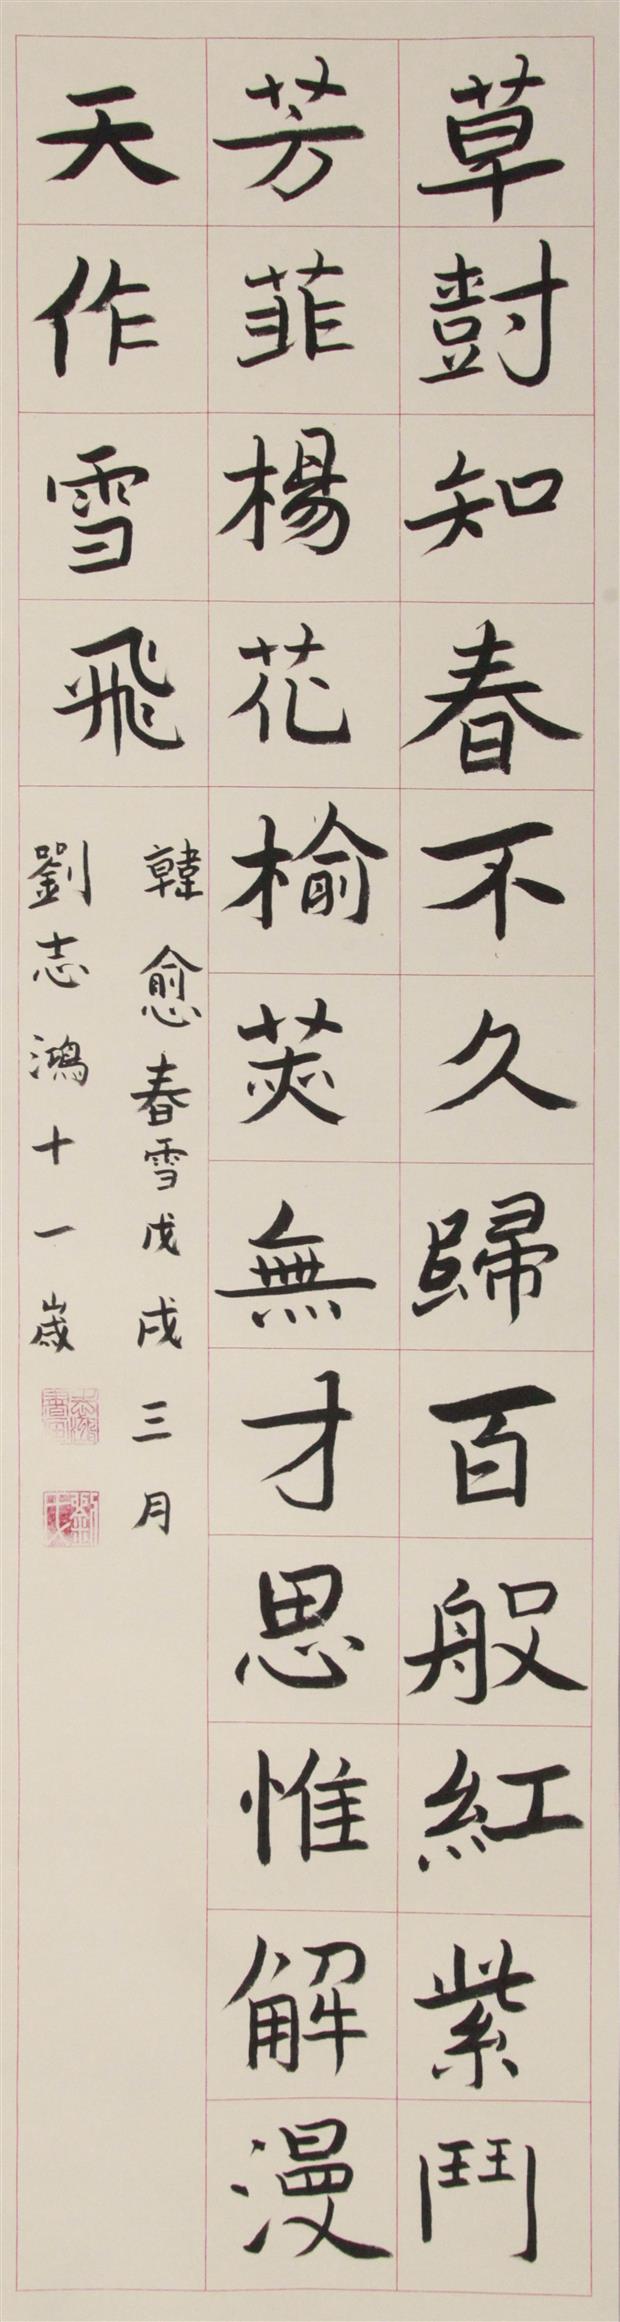 草尌知春不久歸百般紅紫鬥
芳菲楊花榆莢無才思惟解漫
天作雪飛
韓愈春雪戊戌三月
劉志鴻十一歲